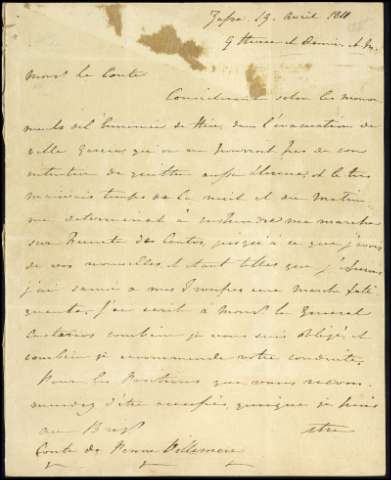 Zafra 19. Avril 1811
9 Heures et Demie
Mons.r Le Conte
Considerant selon les mouve
ments de l'ennemie de Hier, dans l'evacuation de
Villa Garcia qu'on ne pouvoit pas de son
intention de quitter aussi Llerena, et le tres
mauvais temps de la nuit et du Matin
me determinerent à suspendre ma marche
sur Fuente de Cantos, jusqu'a ce que j'aurois
de vos nouvelles, et étant telles que j'
j'ai à mes Troupes une marche fati
guante. J'ai ecrit à Mons.r le General
Castaños combien je vous suis obligé, et
combien je recommende votre conduite.
Pour les Positions que vous recom
mendez d'être occupées, quoique je suis
au
Conte de Penne Villemur